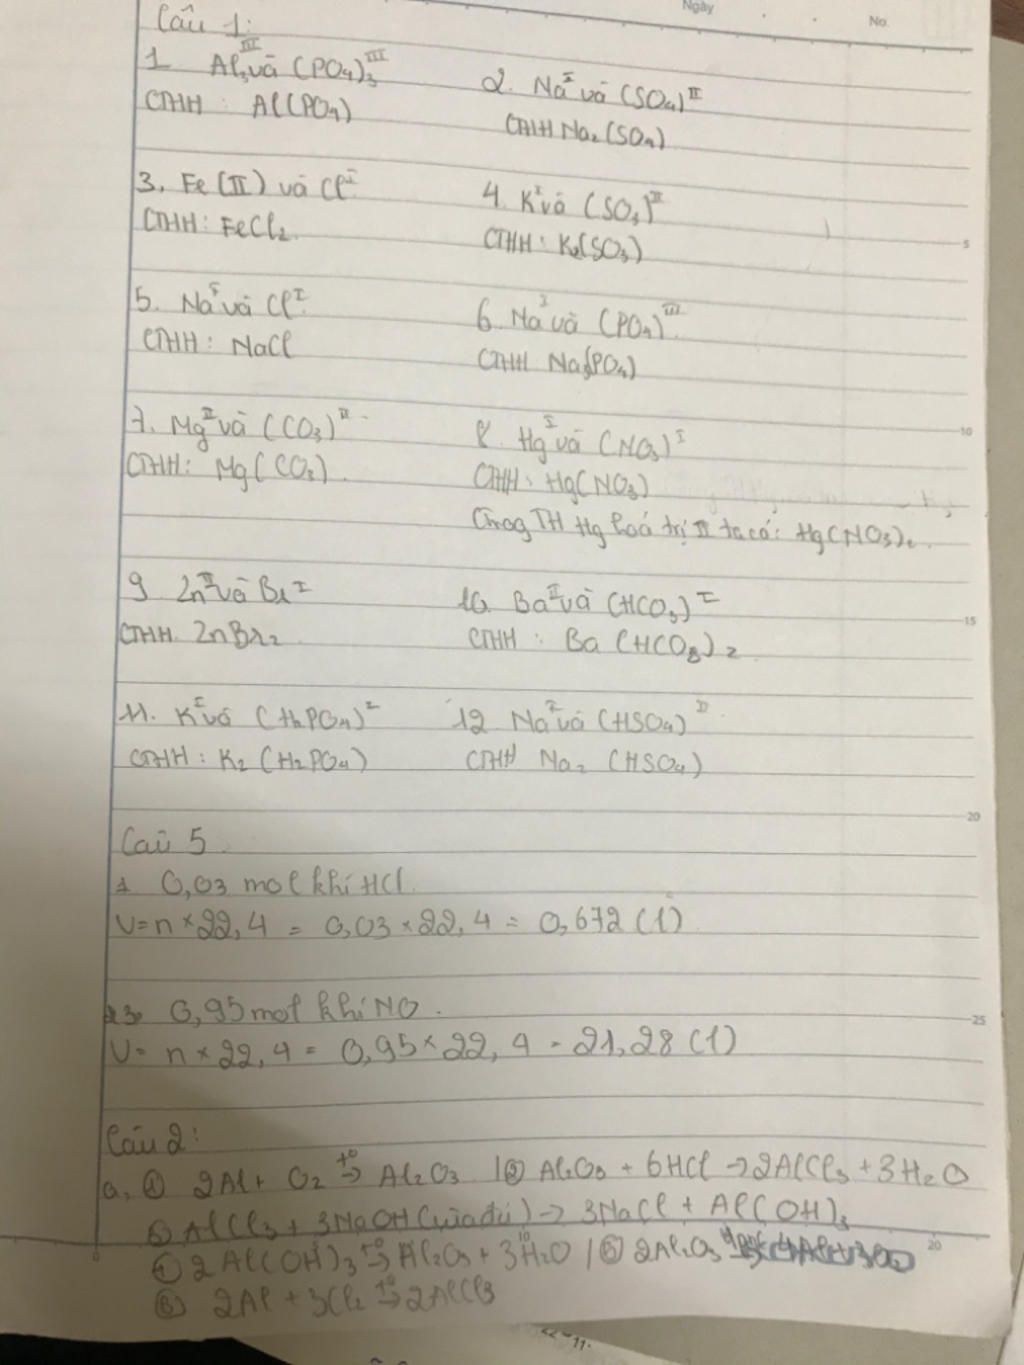 Ngày
No.
Câu 1:
1. Al^III và (PO4)3^III
CTHH : Al(PO4)
2. Na^I và (SO4)^II
CTHH Na2(SO4)
3. Fe (II) và Cl^I
CTHH : FeCl2
4. K^I và (SO3)^II
CTHH : K2(SO3)
5
5. Na^I và Cl^I
CTHH : NaCl
6. Na^I và (PO4)^III
CTHH Na3(PO4)
7. Mg^II và (CO3)^II
CTHH : Mg(CO3)
8. Hg^I và (NO3)^I
CTHH : Hg(NO3)
Trong TH Hg hoá trị II ta có: Hg(NO3)2.
10
9. Zn^II và Br^I
CTHH. ZnBr2
10. Ba^II và (HCO3)^I
CTHH : Ba (HCO3)2
15
11. K^I và (H2PO4)^I
CTHH : K2 (H2PO4)
12 Na^I và (HSO4)^II
CTHH Na2 (HSO4)
20
Câu 5
1. 0,03 mol khí HCl
V=n×22,4 = 0,03×22,4 = 0,672 (l)
3. 0,95 mol khí NO.
V= n×22,4 = 0,95×22,4 = 21,28 (l)
25
Câu 2:
a, ① 2Al + O2 t°→ Al2O3 | ② Al2O3 + 6HCl → 2AlCl3 + 3H2O
③ AlCl3 + 3NaOH (vừa đủ) → 3NaCl + Al(OH)3
④ 2Al(OH)3 t°→ Al2O3 + 3H2O | ⑤ 2Al2O3 đpnc→ 4Al + 3O2
⑥ 2Al + 3Cl2 t°→ 2AlCl3
0
10
20